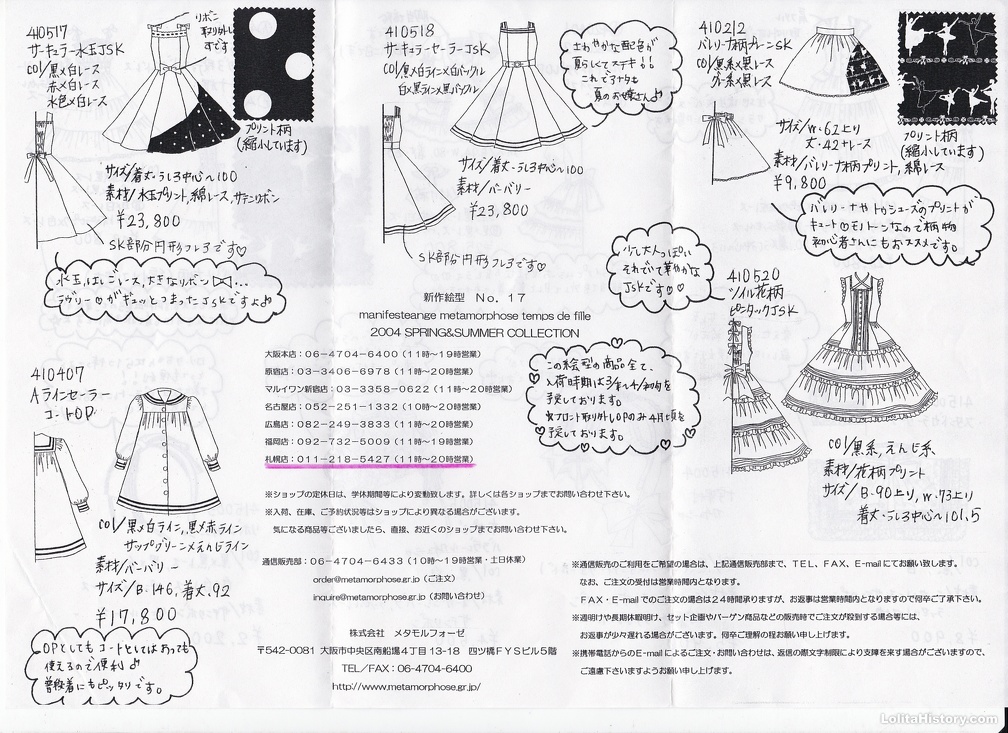 410517
サーキュラー水玉JSK
col/黒×白レース
赤×白レース
水色×白レース
リボン
取り外し
すです
プリント柄
(縮小しています)
サイズ/着丈・うしろ中心〜100
素材/水玉プリント, 綿レース, サテンリボン
¥23,800
SK部分円形フレアです♡
水玉,はしごレース,大きなリボン…
ラヴリー♡がギュッとつまったJSKですよ♪
410518
サーキュラーセーラーJSK
col/黒×白ライン×白バックル
白×黒ライン×黒バックル
さわやかな配色が
夏らしくてステキ!!
これでアナタも
夏のお嬢さん♪
サイズ/着丈・うしろ中心〜100
素材/バーバリー
¥23,800
SK部分円形フレアです♡
410212
バレリーナ柄プレーンSK
col/黒系×黒レース
グレー系×黒レース
プリント柄
(縮小しています)
サイズ/W・62より
丈・42+レース
素材/バレリーナ柄プリント, 綿レース
¥9,800
バレリーナやトゥシューズのプリントが
キュート♡モノトーンなので柄物
初心者さんにもおススメです。
少し大人っぽい
それでいて華やかな
JSKです♡♡
410520
ツイル花柄
ピンタックJSK
col/黒系, えんじ系
素材/花柄プリント
サイズ/B・90より, W・73より
着丈・うしろ中心〜101.5
新作絵型 No. 17
manifesteange metamorphose temps de fille
2004 SPRING&SUMMER COLLECTION
大阪本店:06-4704-6400(11時〜19時営業)
原宿店:03-3406-6978(11時〜20時営業)
マルイワン新宿店:03-3358-0622(11時〜20時営業)
名古屋店:052-251-1332(10時〜20時営業)
広島店:082-249-3833(11時〜20時営業)
福岡店:092-732-5009(11時〜19時営業)
札幌店:011-218-5427(11時〜20時営業)
この絵型の商品全て、
入荷時期は3/末〜4/初旬を
予定しております。
※フロント取外しOPのみ4月頃を
予定しております。
※ショップの定休日は、学休期間等により変動致します。詳しくは各ショップまでお問い合わせ下さい。
※入荷、在庫、ご予約状況等はショップにより異なる場合がございます。
気になる商品等ございましたら、直接、お近くのショップまでお問い合わせ下さい。
410407
Aラインセーラー
コートOP
col/黒×白ライン, 黒×赤ライン
サップグリーン×えんじライン
素材/バーバリー
サイズ/B・146, 着丈・92
¥17,800
OPとしてもコートとしてはおっても
使えるので便利♪
普段着にもピッタリです。
通信販売部:06-4704-6433(10時〜19時営業・土日休業)
order@metamorphose.gr.jp(ご注文)
inquire@metamorphose.gr.jp(お問い合わせ)
株式会社 メタモルフォーゼ
〒542-0081 大阪市中央区南船場4丁目13-18 四ツ橋FYSビル5階
TEL/FAX:06-4704-6400
http://www.metamorphose.gr.jp/
※通信販売のご利用をご希望の場合は、上記通信販売部まで、TEL、FAX、E-mailにてお願い致します。
なお、ご注文の受付は営業時間内となります。
FAX・E-mailでのご注文の場合は24時間承りますが、お返事は営業時間内となりますので何卒ご了承下さい。
※週明けや長期休暇明け、セット企画やバーゲン商品などの販売時でご注文が殺到する場合等には、
お返事が少々遅れる場合がございます。何卒ご理解の程お願い申し上げます。
※携帯電話からのE-mailによるご注文・お問い合わせは、返信の際文字制限により支障を来す場合がございますので、
ご遠慮下さいますようお願い申し上げます。
LolitaHistory.com